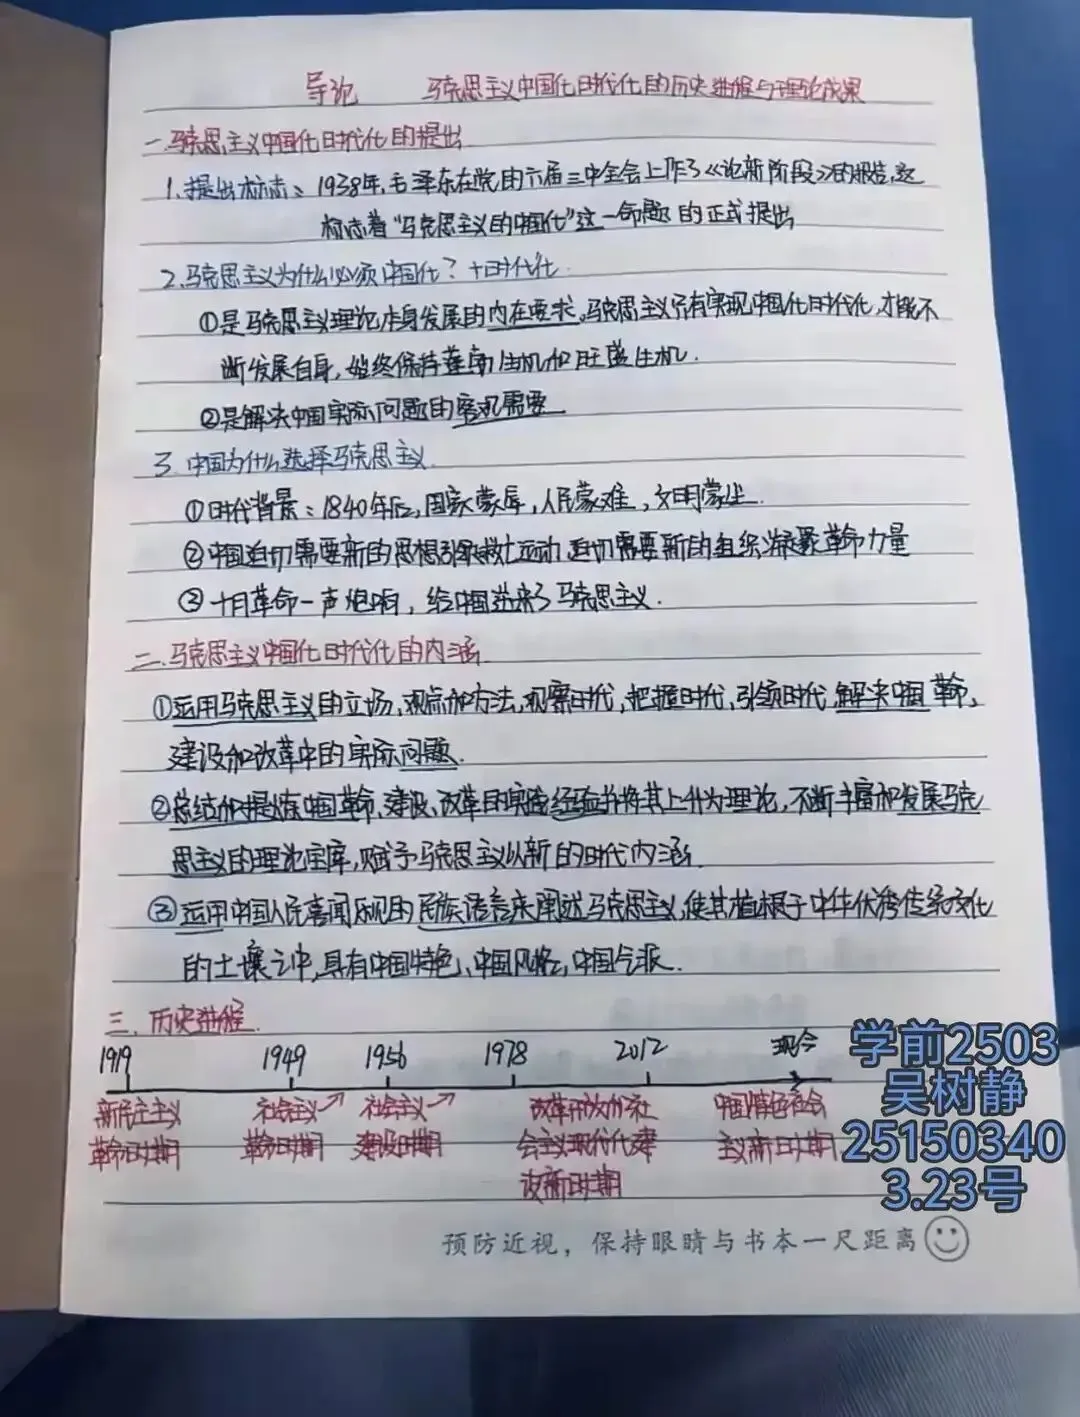 导论 马克思主义中国化时代化的历史进程与理论成果
一.马克思主义中国化时代化的提出
1.提出标志：1938年,毛泽东在党的六届三中全会上作了《论新阶段》的报告,这
标志着“马克思主义的中国化”这一命题的正式提出
2.马克思主义为什么必须中国化？+时代化
①是马克思主义理论本身发展的内在要求,马克思主义只有实现中国化时代化,才能不
断发展自身,始终保持蓬勃生机和旺盛生机.
②是解决中国实际问题的客观需要
3.中国为什么选择马克思主义
①时代背景：1840年后,国家蒙辱,人民蒙难,文明蒙尘.
②中国迫切需要新的思想引领救亡运动,迫切需要新的组织凝聚革命力量
③十月革命一声炮响,给中国送来了马克思主义.
二.马克思主义中国化时代化的内涵
①运用马克思主义的立场,观点和方法,观察时代,把握时代,引领时代,解决中国革命,
建设和改革中的实际问题.
②总结和提炼中国革命,建设,改革的实践经验并将其上升为理论,不断丰富和发展马克
思主义的理论宝库,赋予马克思主义以新的时代内涵.
③运用中国人民喜闻乐见的民族语言来阐述马克思主义,使其植根于中华优秀传统文化
的土壤之中,具有中国特色,中国风格,中国气派.
三.历史进程
1919 1949 1956 1978 2012 现今
新民主主义 社会主义↗ 社会主义↗ 改革开放和社 中国特色社会
革命时期 革命时期 建设时期 会主义现代化建 主义新时期
设新时期
学前2503
吴树静
25150340
3.23号
预防近视，保持眼睛与书本一尺距离